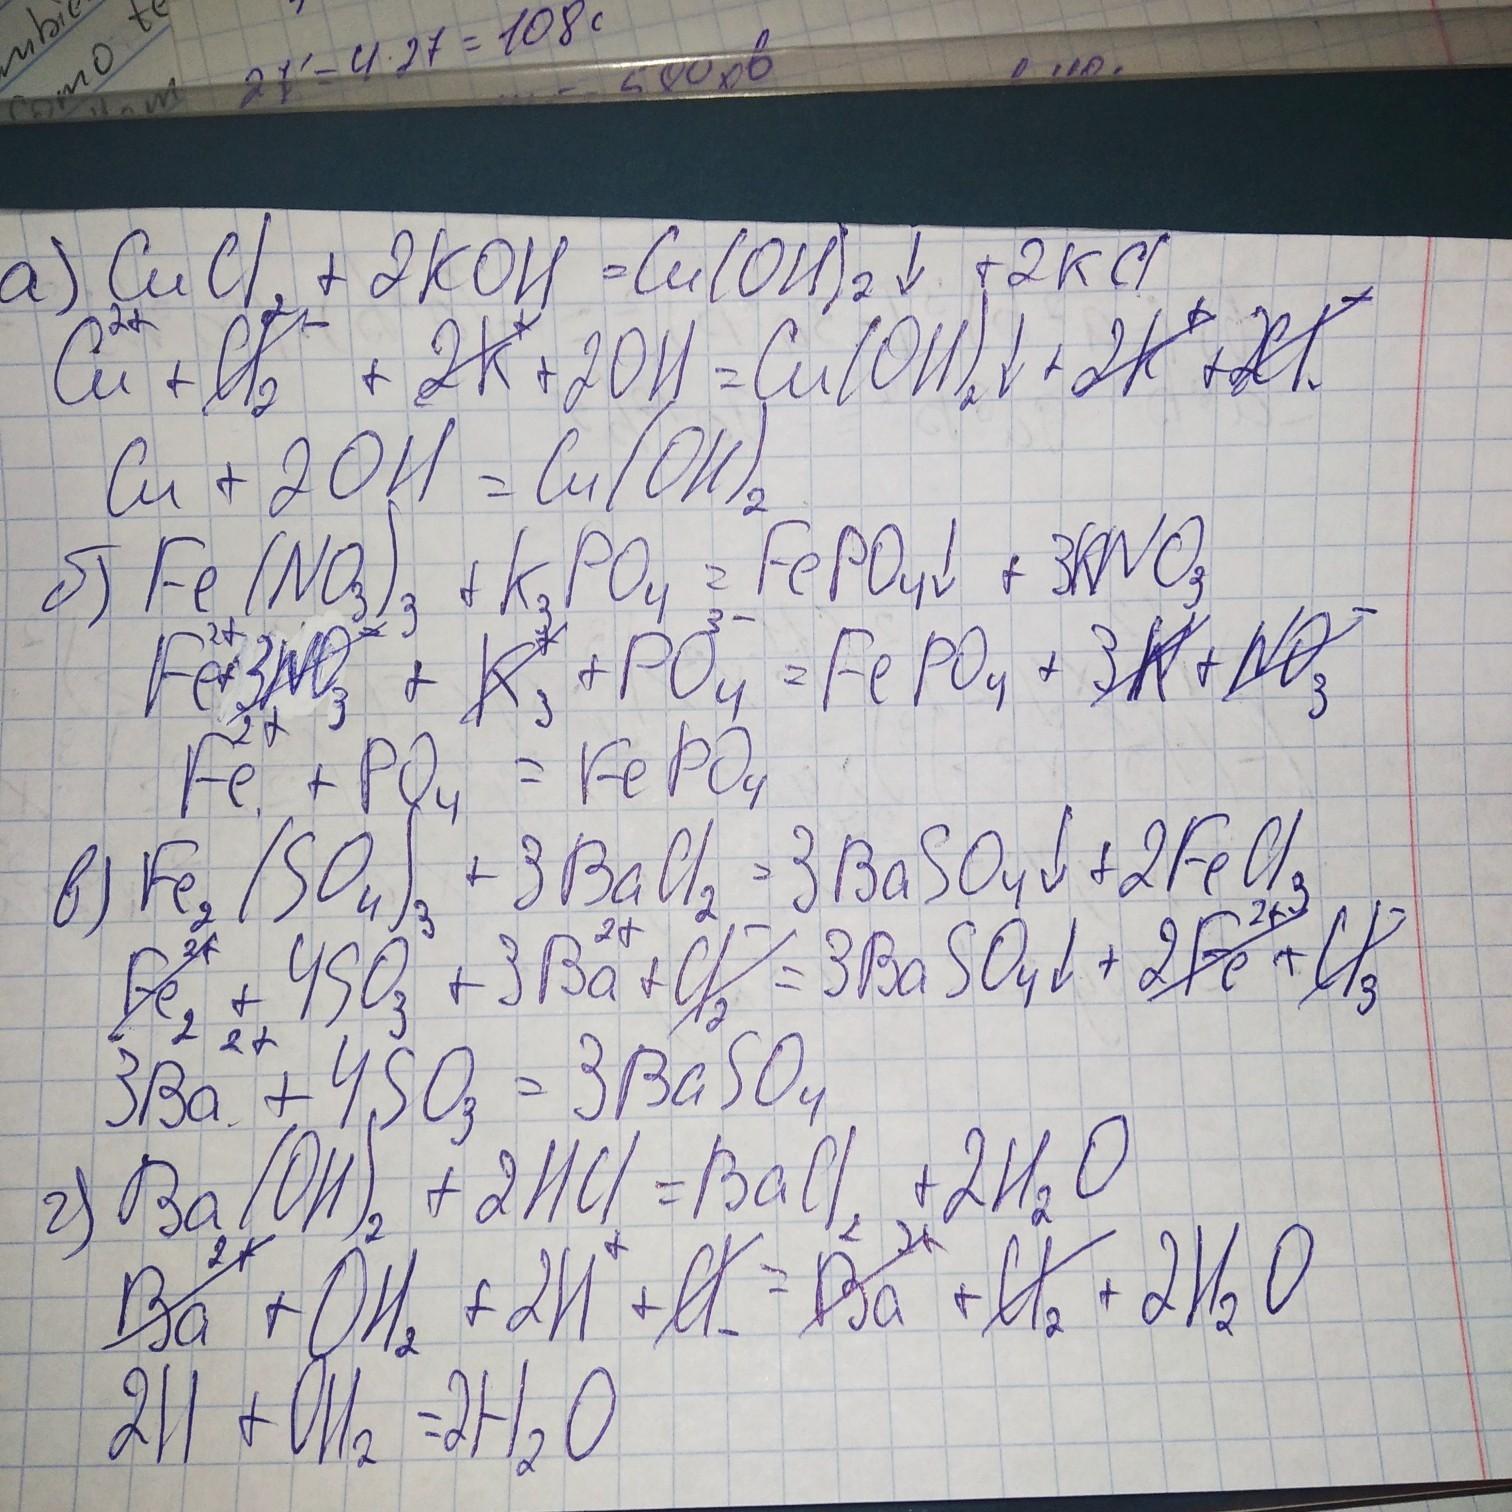 como te
27' = 4 · 27 = 108 с
а) CuCl₂ + 2KOH = Cu(OH)₂↓ + 2KCl
Cu²⁺ + Cl₂⁻ + 2K⁺ + 2OH = Cu(OH)₂↓ + 2K⁺ + 2Cl⁻
Cu + 2OH = Cu(OH)₂
б) Fe(NO₃)₃ + K₃PO₄ = FePO₄↓ + 3KNO₃
Fe²⁺ + 3NO₃⁻ + K₃⁺ + PO₄³⁻ = FePO₄ + 3K + NO₃⁻
Fe²⁺ + PO₄ = FePO₄
в) Fe₂(SO₄)₃ + 3BaCl₂ = 3BaSO₄↓ + 2FeCl₃
Fe₂²⁺ + 4SO₃ + 3Ba²⁺ + Cl₂⁻ = 3BaSO₄↓ + 2Fe²⁺ + Cl₃⁻
3Ba²⁺ + 4SO₃ = 3BaSO₄
г) Ba(OH)₂ + 2HCl = BaCl₂ + 2H₂O
Ba²⁺ + OH₂ + 2H⁺ + Cl⁻ = Ba²⁺ + Cl₂ + 2H₂O
2H + OH₂ = 2H₂O